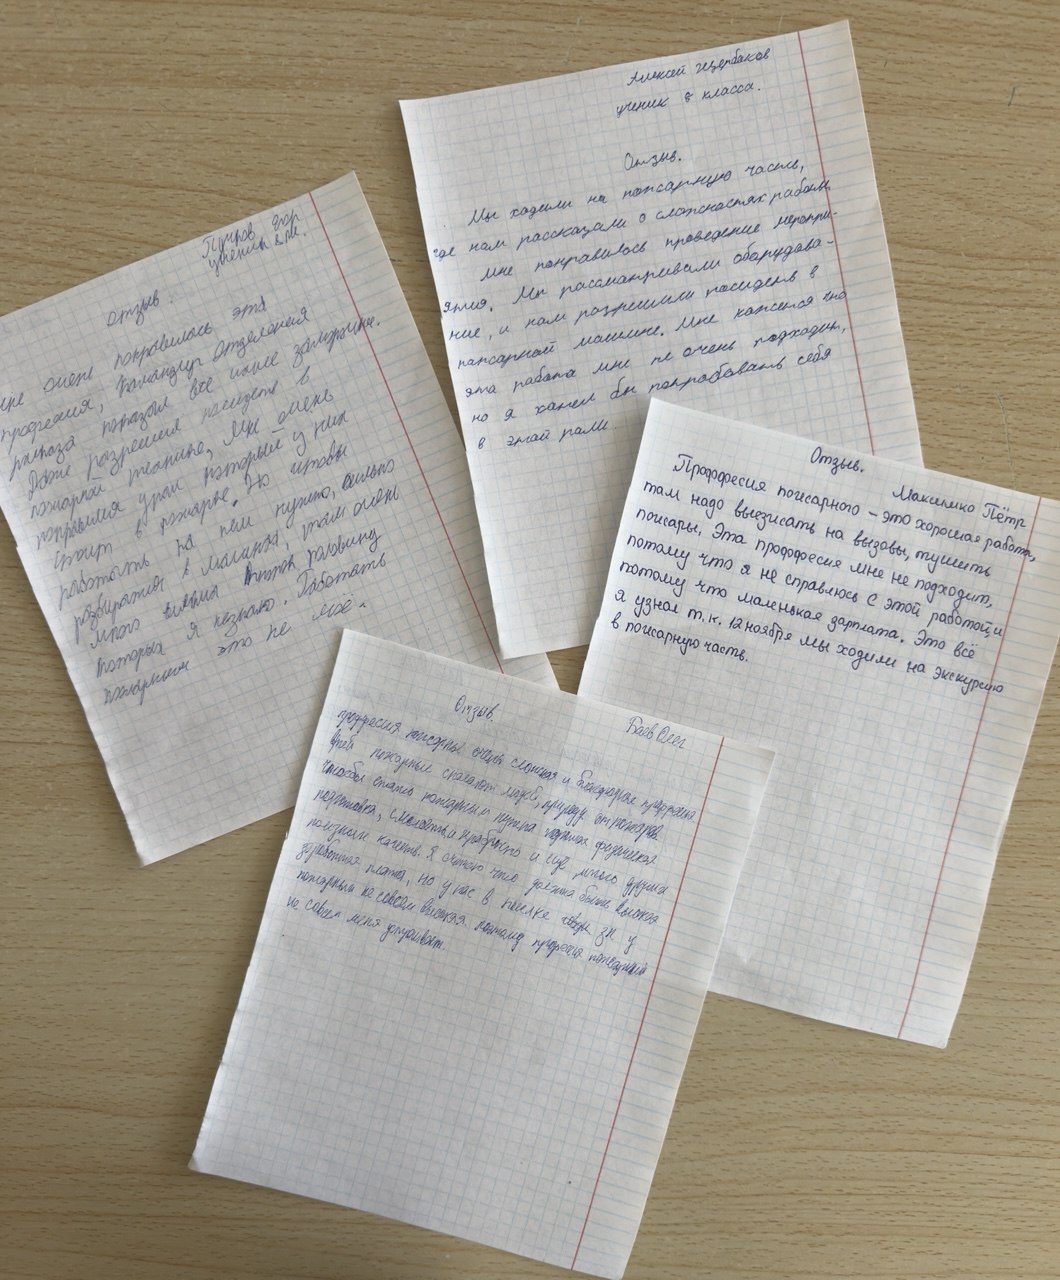 Алексей Щербаков
ученик 8 класса.
Отзыв.
Мы ходили на пожарную часть,
где нам рассказали о сложностях работы
мне понравилось проведение меропри-
ятия. Мы рассматривали оборудова-
ние, и нам разрешили посидеть в
пожарной машине. Мне кажется что
эта работа мне не очень подходит,
но я хотел бы попробовать себя
в этой роли
Егор
ученик
Отзыв.
мне очень понравилась эта
профессия, Командир отделения
показал все
Даже разрешил посидеть в
пожарной технике, Мне очень
понравился который у них
стоит в пожарке. Но чтобы
работать на нем нужно, сильно
разбираться в машинах, там очень
много половину
которых я незнаю. Работать
пожарным это не моё.
Отзыв.
Максимко Пётр
Проффесия пожарного – это хорошая работа,
там надо выезжать на вызовы, тушить
пожары. Эта проффесия мне не подходит,
потому что я не справлюсь с этой работой, и
потому что маленькая зарплата. Это всё
я узнал т.к. 12 ноября мы ходили на экскурсию
в пожарную часть.
Отзыв.
Баев Олег
проффесия пожарные очень сложная и
пожарные спасают людей, природу от пожаров
чтобы стать пожарным нужна хорошая физическая
подготовка, смелость и храбрость и еще много других
полезных качеств. Я считаю что должна быть высокая
заработная плата, но у нас в поселке зп у
пожарным не совсем высокая поэтому професия пожарный
не совсем меня устраивает.